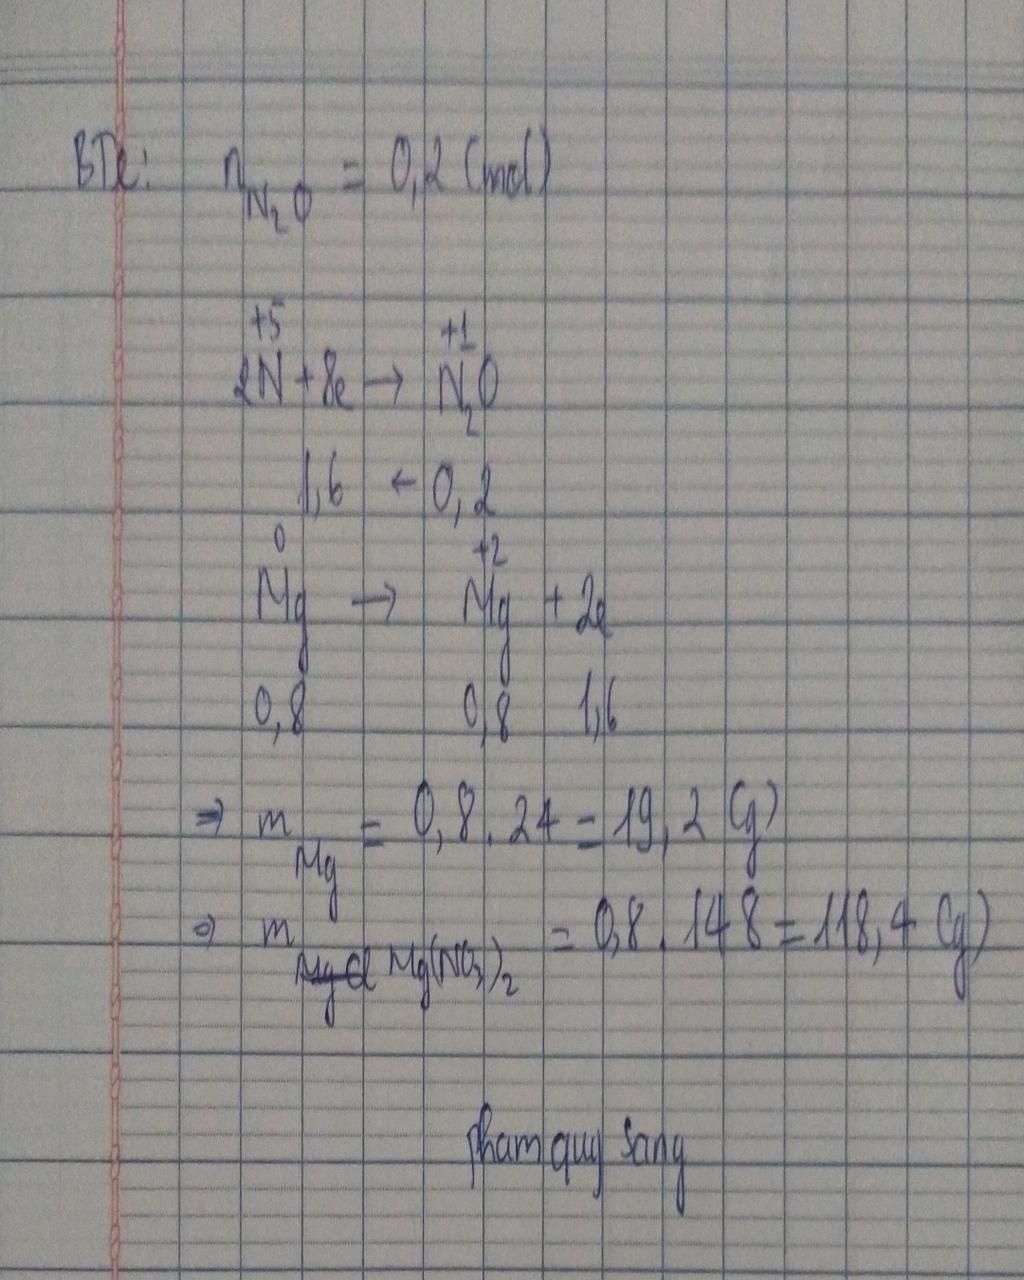 BTe: nN₂O = 0,2 (mol)
+5 +1
2N + 8e → N₂O
1,6 ← 0,2
0 +2
Mg → Mg + 2e
0,8 0,8 1,6
⇒ mMg = 0,8 . 24 = 19,2 (g)
⇒ m Mg(NO₃)₂ = 0,8 . 148 = 118,4 (g)
pham quy sang